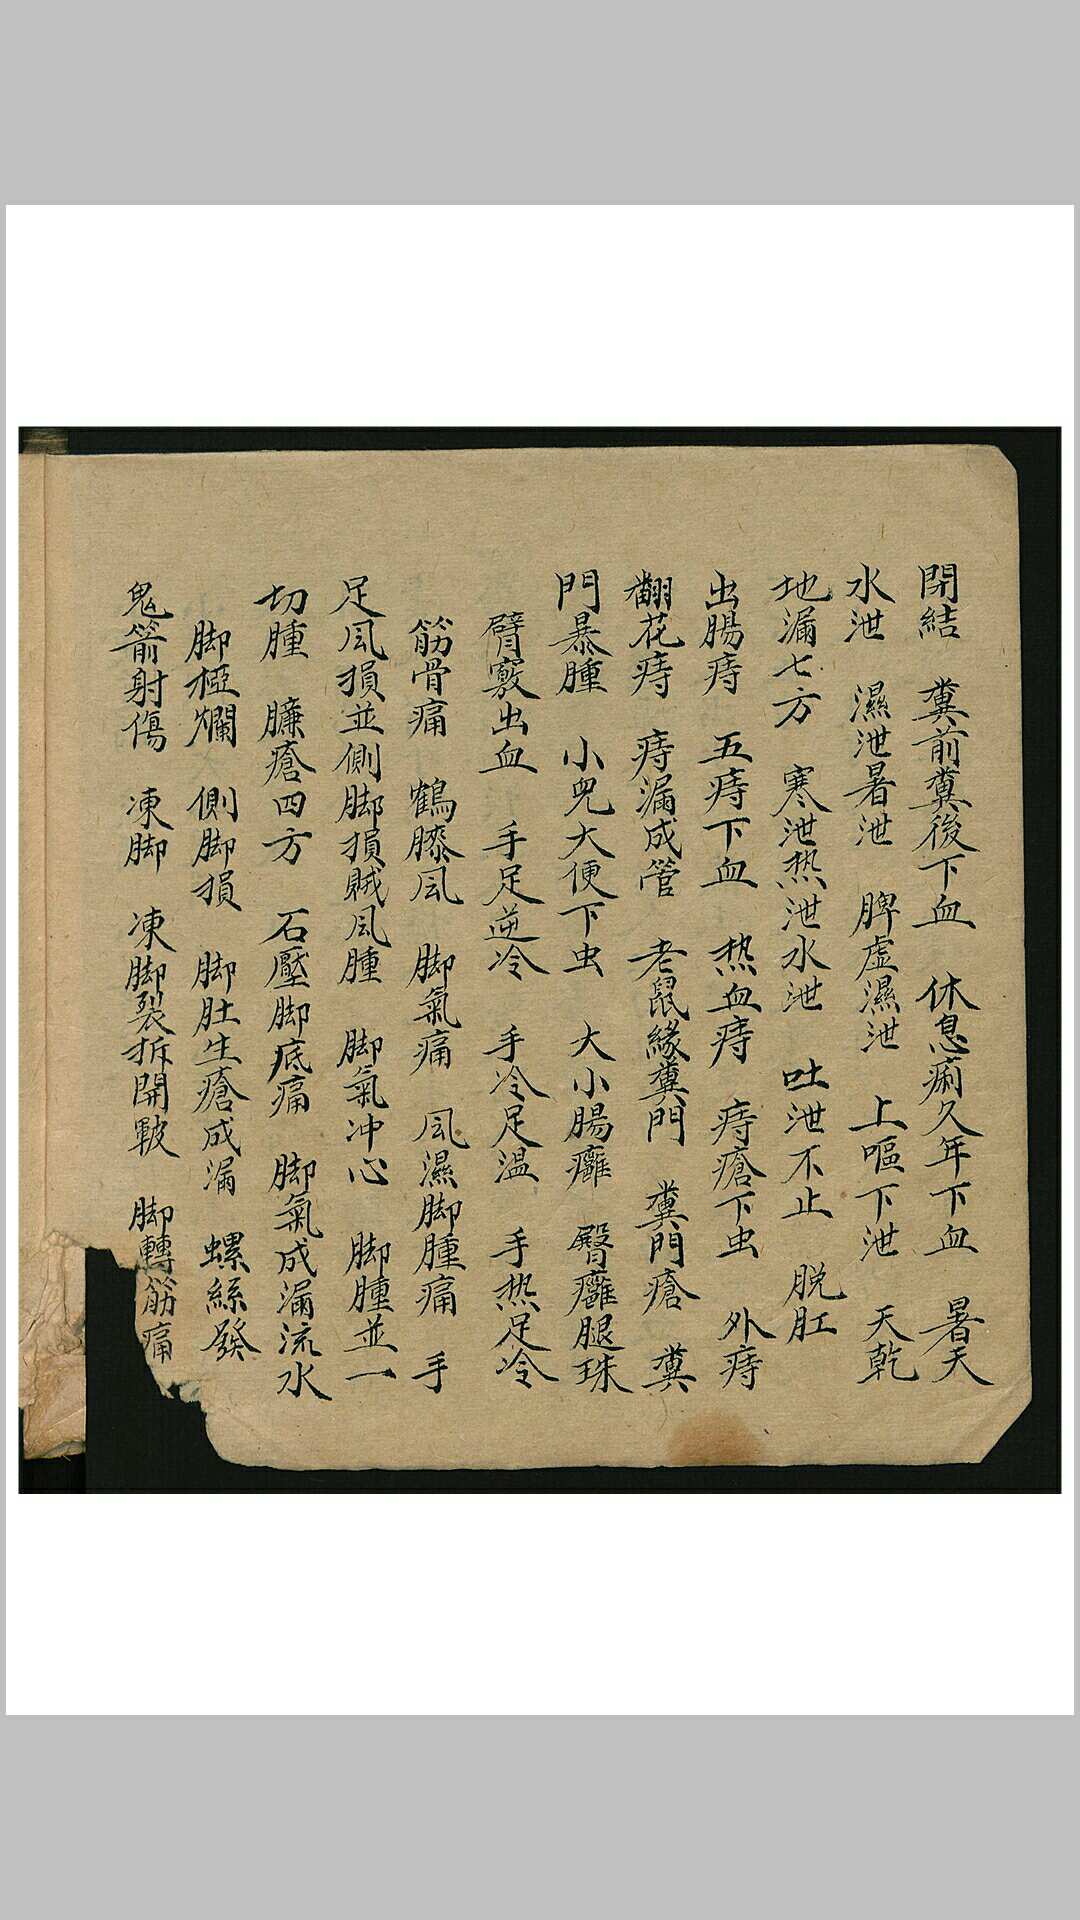 閉結　糞前糞後下血　休息痢久年下血　暑天
水泄　濕泄暑泄　脾虛濕泄　上嘔下泄　天乾
地漏七方　寒泄热泄水泄　吐泄不止　脱肛
出腸痔　五痔下血　热血痔　痔瘡下虫　外痔
翻花痔　痔漏成管　老鼠緣糞門　糞門瘡　糞
門暴腫　小兒大便下虫　大小腸癰　臀癰腿珠
臂竅出血　手足逆冷　手冷足溫　手热足冷
筋骨痛　鶴膝風　脚氣痛　風濕脚腫痛　手
足風損並側脚損賊風腫　脚氣冲心　脚腫並一
切腫　臁瘡四方　石壓脚底痛　脚氣成漏流水
脚椏爛　側脚損　脚肚生瘡成漏　螺絲發
鬼箭射傷　凍脚　凍脚裂拆開皸　脚轉筋痛